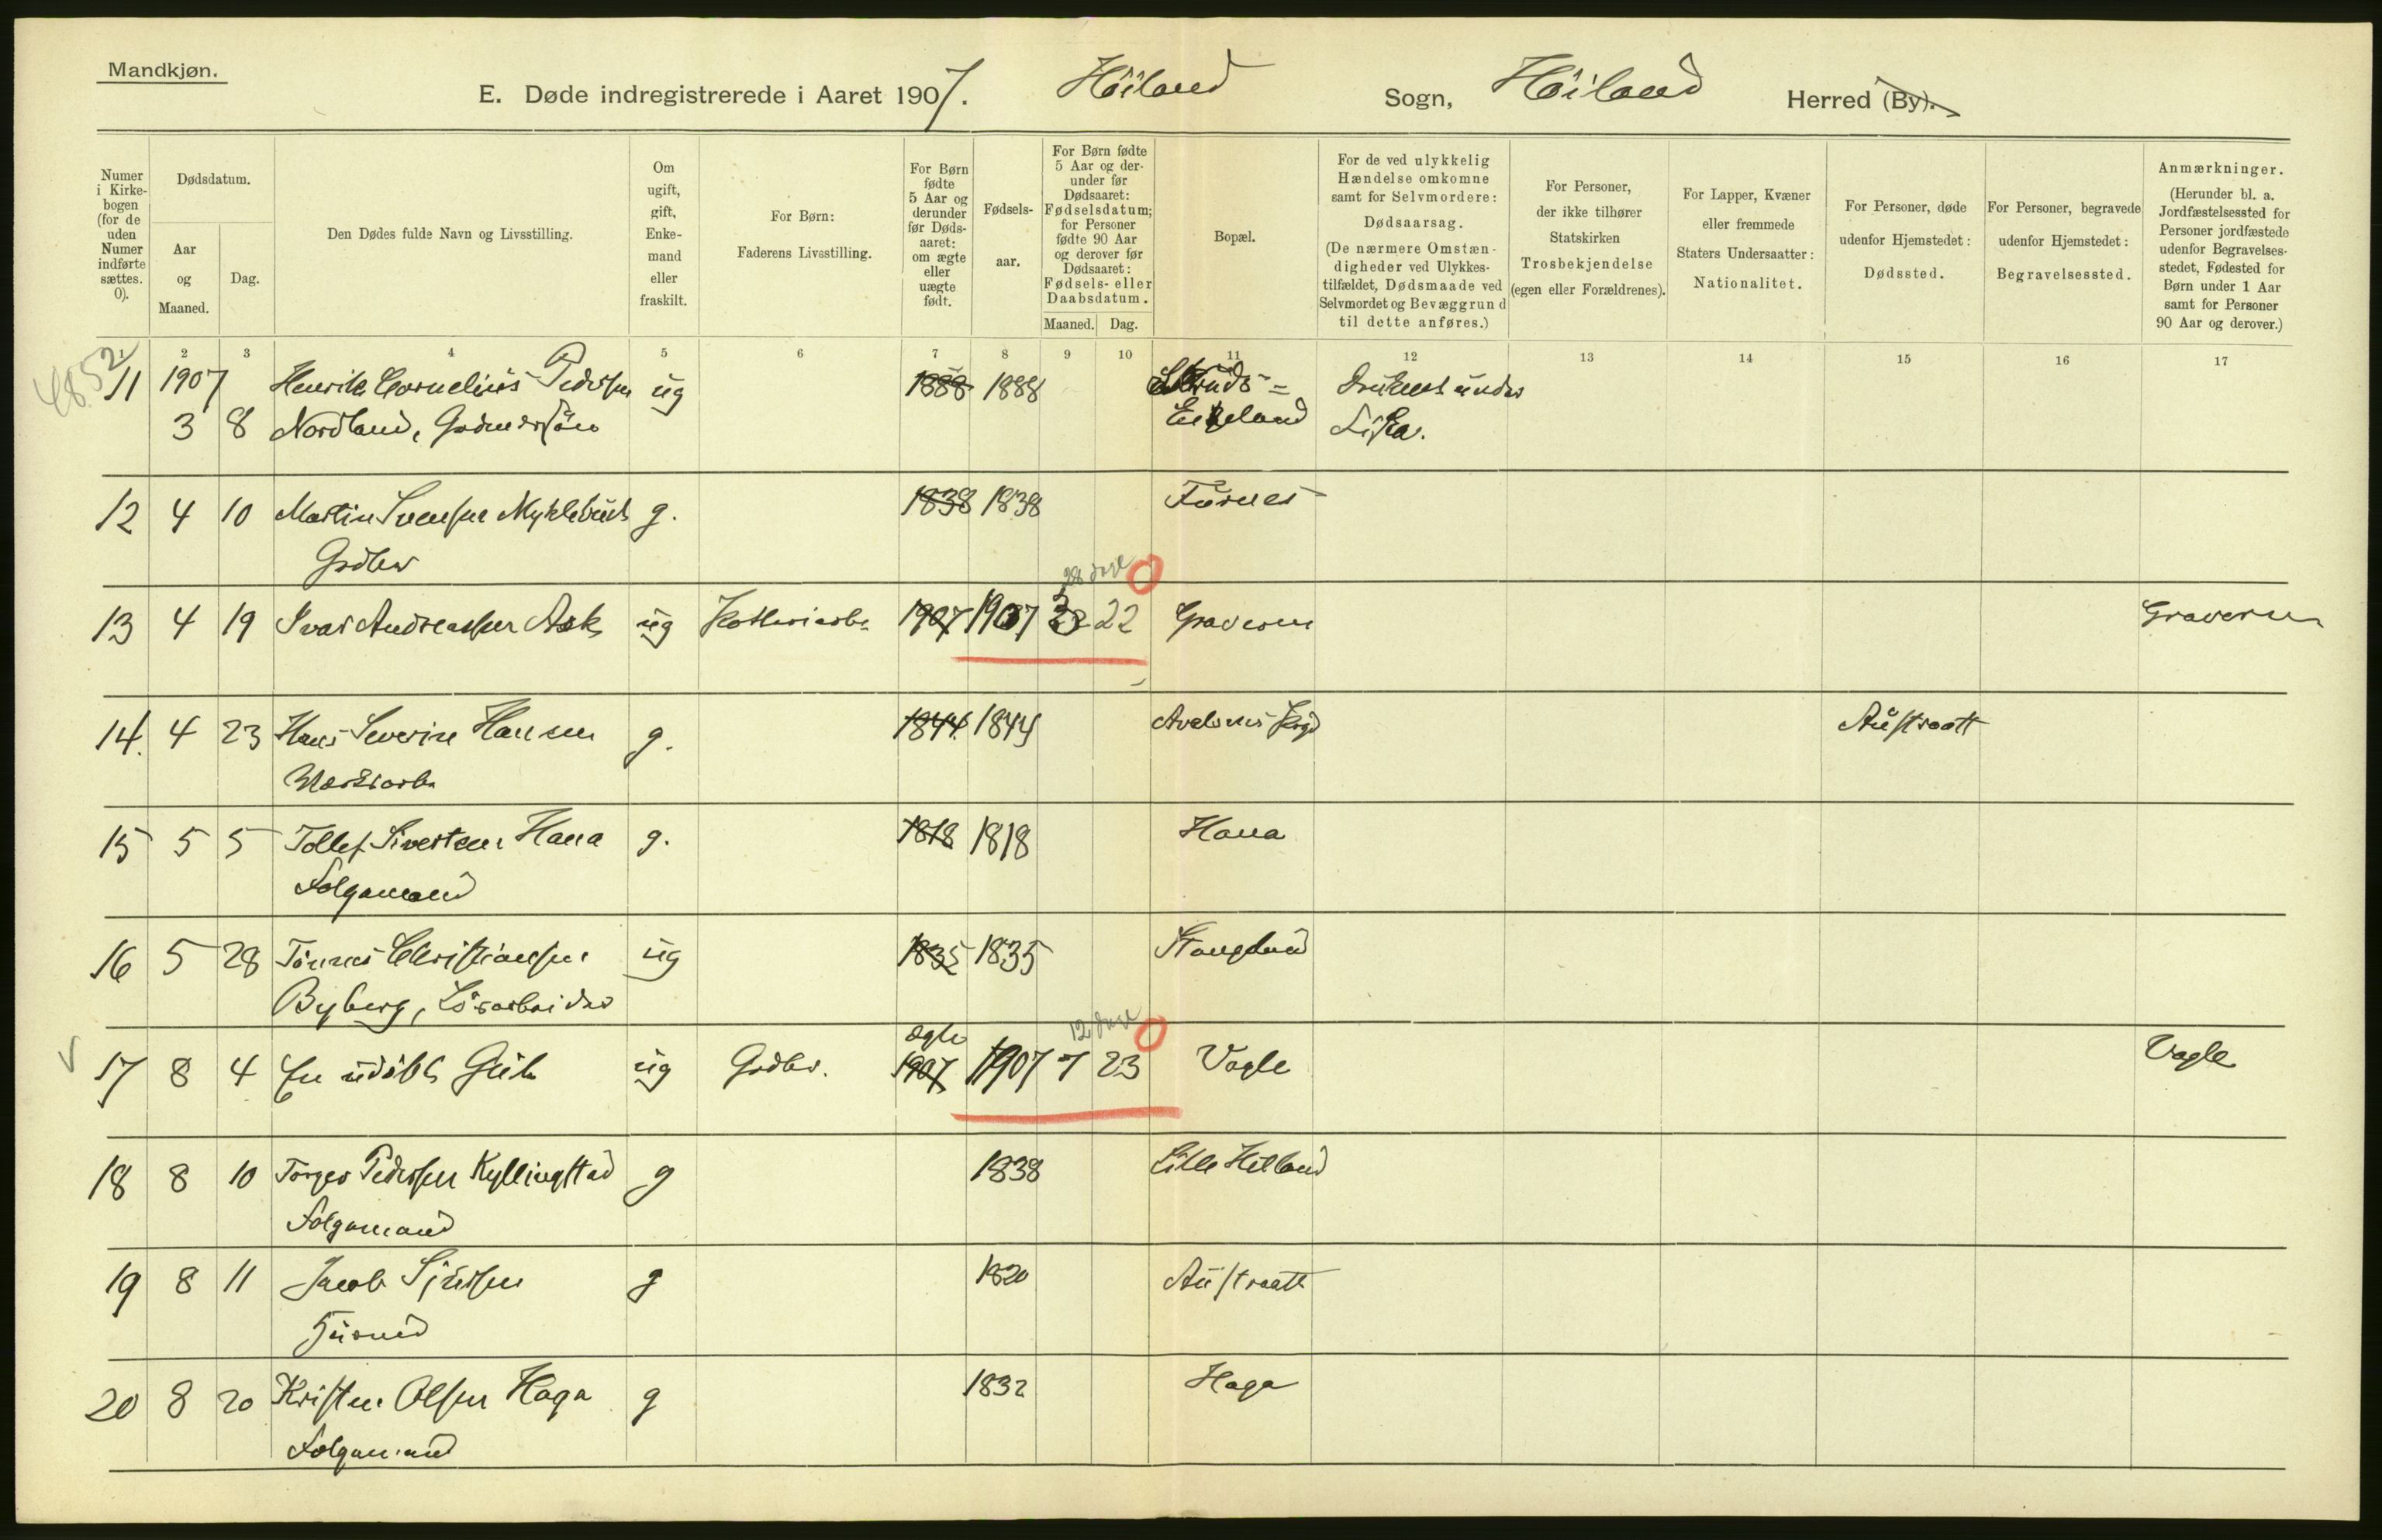 Mandkjøn.
E. Døde indregistrerede i Aaret 1907. Höiland Sogn, Höiland Herred (By).
Numer i Kirkebogen (for de uden Numer indførte sættes. 0).
Dødsdatum.
Aar og Maaned.
Dag.
Den Dødes fulde Navn og Livsstilling.
Om ugift, gift, Enkemand eller fraskilt.
For Børn: Faderens Livsstilling.
For Børn fødte 5 Aar og derunder før Dødsaaret: om ægte eller uægte født.
Fødselsaar.
For Børn fødte 5 Aar og derunder før Dødsaaret: Fødselsdatum; for Personer fødte 90 Aar og derover før Dødsaaret: Fødsels- eller Daabsdatum.
Maaned. Dag.
Bopæl.
For de ved ulykkelig Hændelse omkomne samt for Selvmordere: Dødsaarsag. (De nærmere Omstændigheder ved Ulykkestilfældet, Dødsmaade ved Selvmordet og Bevæggrund til dette anføres.)
For Personer, der ikke tilhører Statskirken Trosbekjendelse (egen eller Forældrenes).
For Lapper, Kvæner eller fremmede Staters Undersaatter: Nationalitet.
For Personer, døde udenfor Hjemstedet: Dødssted.
For Personer, begravede udenfor Hjemstedet: Begravelsessted.
Anmærkninger. (Herunder bl. a. Jordfæstelsessted for Personer jordfæstede udenfor Begravelsesstedet, Fødested for Børn under 1 Aar samt for Personer 90 Aar og derover.)
1 2 3 4 5 6 7 8 9 10 11 12 13 14 15 16 17
11 1907 Henrik Cornelius Pedersen ug 1888 1888
3 8 Nordland, Eikeland
12 4 10 Martin Svensen Myklebust g. 1838 1838
Gdbr
28 dage
13 4 19 Ivar Andreassen Ask ug 1907 1907 3 22 Graveren Graveren
14. 4 23 Hans Severin Hansen g. 1844 1844 Austraatt
15 5 5 Tollef Sivertsen Hana g. 1818 1818 Hana
Folgamand
16 5 28 Tönnes Christiansen ug 1835 1835 Stangeland
Byberg, Lösarbeider
ægte 12 dage
17 8 4 En udöbt Gut ug Gdbr. 1907 1907 7 23 Vagle Vagle
18 8 10 Torger Pedersen Kyllingstad g 1838 Lille Hetland
Folgamand
19 8 11 Jacob g 1820 Austraatt
20 8 20 Kristen Olsen Haga g 1832 Haga
Folgamand